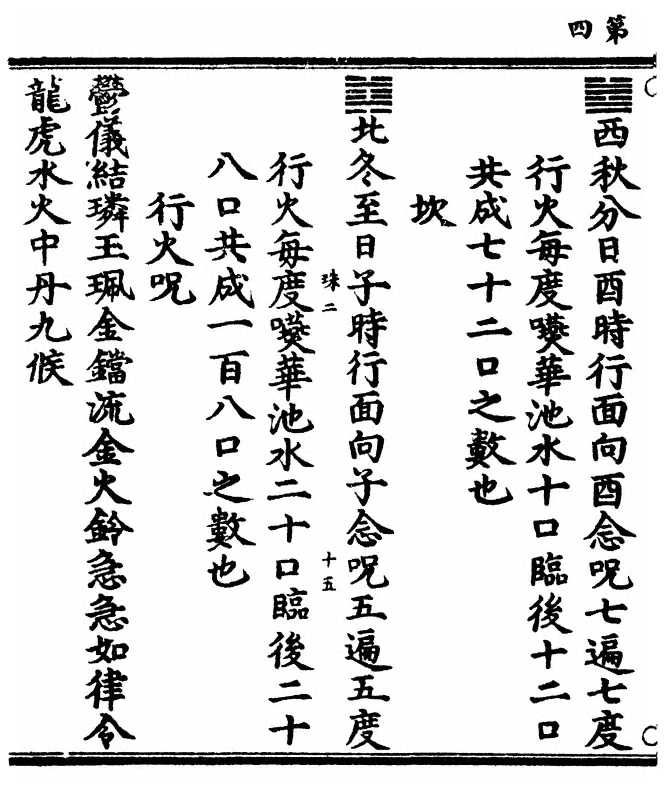 第四
西秋分日酉時行面向酉念呪七遍七度
行火每度嚥華池水十口臨後十二口
共成七十二口之數也
坎
北冬至日子時行面向子念呪五遍五度
珠二
十五
行火每度嚥華池水二十口臨後二十
八口共成一百八口之數也
行火呪
鬱儀結璘玉珮金鐺流金火鈴急急如律令
龍虎水火中丹九候